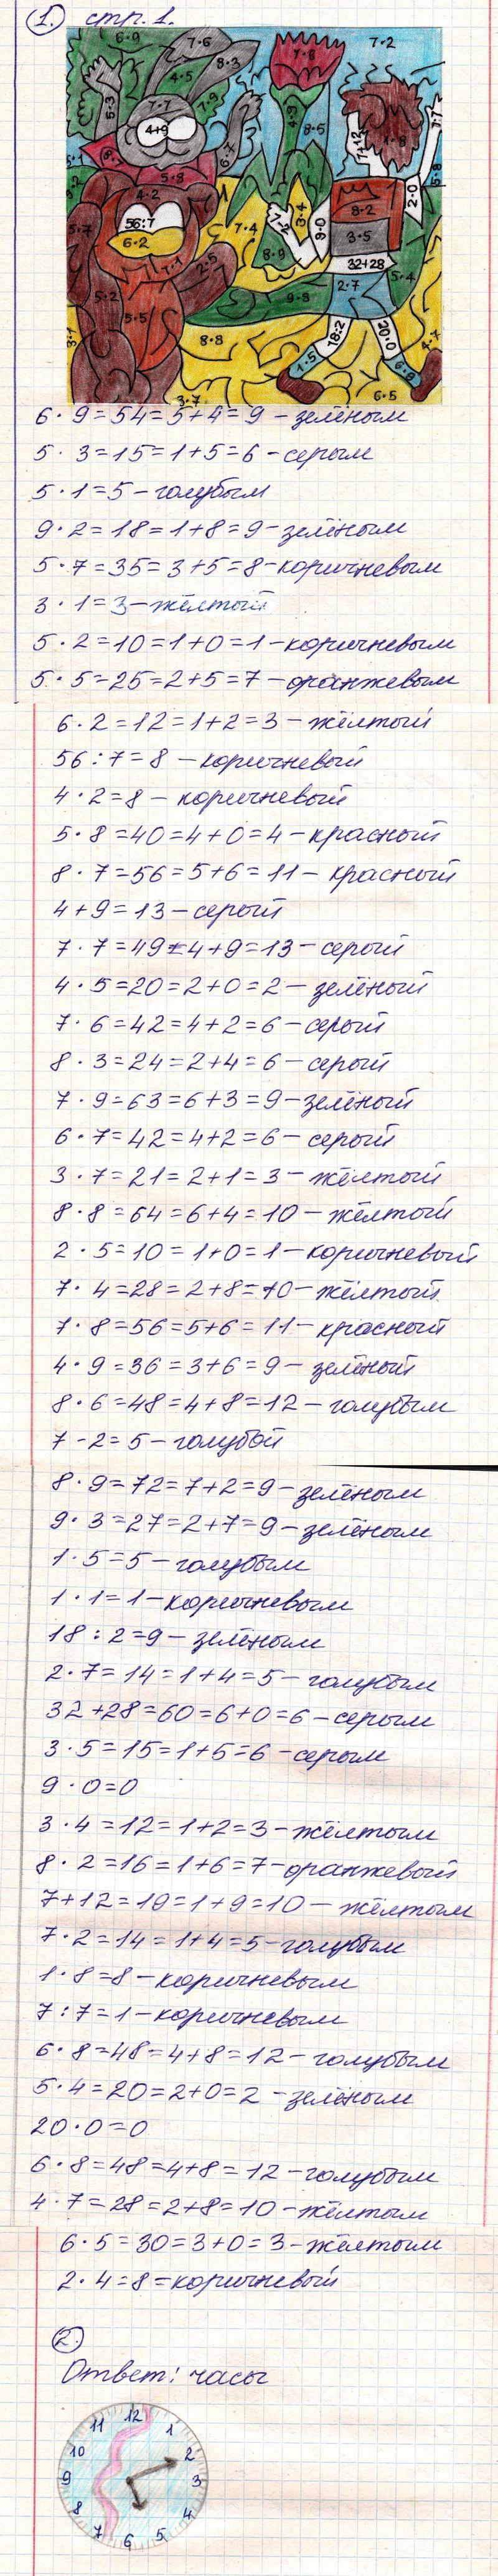 1. стр. 1.
6·9
7·6
7·2
8·3
4·5
7·8
5·3
7·7
7·9
4·9
8·6
4+9
7+12
1·8
7:7
6·7
8·7
5·8
5·1
9·2
4·2
2·0
6·8
56:7
7·2
3·4
9·0
8·2
5·7
6·2
7·4
3·5
1·1
2·5
8·9
32+28
5·4
5·2
2·7
9·8
5·5
8·8
18:2
20·0
3·1
1·5
6·8
4·7
3·7
6·5
6·9=54=5+4=9 – зелёным
5·3=15=1+5=6 – серым
5·1=5 – голубым
9·2=18=1+8=9 – зелёным
5·7=35=3+5=8 – коричневым
3·1=3 – жёлтый
5·2=10=1+0=1 – коричневым
5·5=25=2+5=7 – оранжевым
6·2=12=1+2=3 – жёлтый
56:7=8 – коричневый
4·2=8 – коричневый
5·8=40=4+0=4 – красный
8·7=56=5+6=11 – красный
4+9=13 – серый
7·7=49=4+9=13 – серый
4·5=20=2+0=2 – зелёный
7·6=42=4+2=6 – серый
8·3=24=2+4=6 – серый
7·9=63=6+3=9 – зелёный
6·7=42=4+2=6 – серый
3·7=21=2+1=3 – жёлтый
8·8=64=6+4=10 – жёлтый
2·5=10=1+0=1 – коричневый
7·4=28=2+8=10 – жёлтый
7·8=56=5+6=11 – красный
4·9=36=3+6=9 – зелёный
8·6=48=4+8=12 – голубым
7-2=5 – голубой
8·9=72=7+2=9 – зелёным
9·3=27=2+7=9 – зелёным
1·5=5 – голубым
1·1=1 – коричневым
18:2=9 – зелёным
2·7=14=1+4=5 – голубым
32+28=60=6+0=6 – серым
3·5=15=1+5=6 – серым
9·0=0
3·4=12=1+2=3 – жёлтым
8·2=16=1+6=7 – оранжевый
7+12=19=1+9=10 – жёлтым
7·2=14=1+4=5 – голубым
1·8=8 – коричневым
7:7=1 – коричневым
6·8=48=4+8=12 – голубым
5·4=20=2+0=2 – зелёным
20·0=0
6·8=48=4+8=12 – голубым
4·7=28=2+8=10 – жёлтым
6·5=30=3+0=3 – жёлтым
2·4=8=коричневый
2.
Ответ: часы
12
11
1
10
2
9
3
8
4
7
6
5